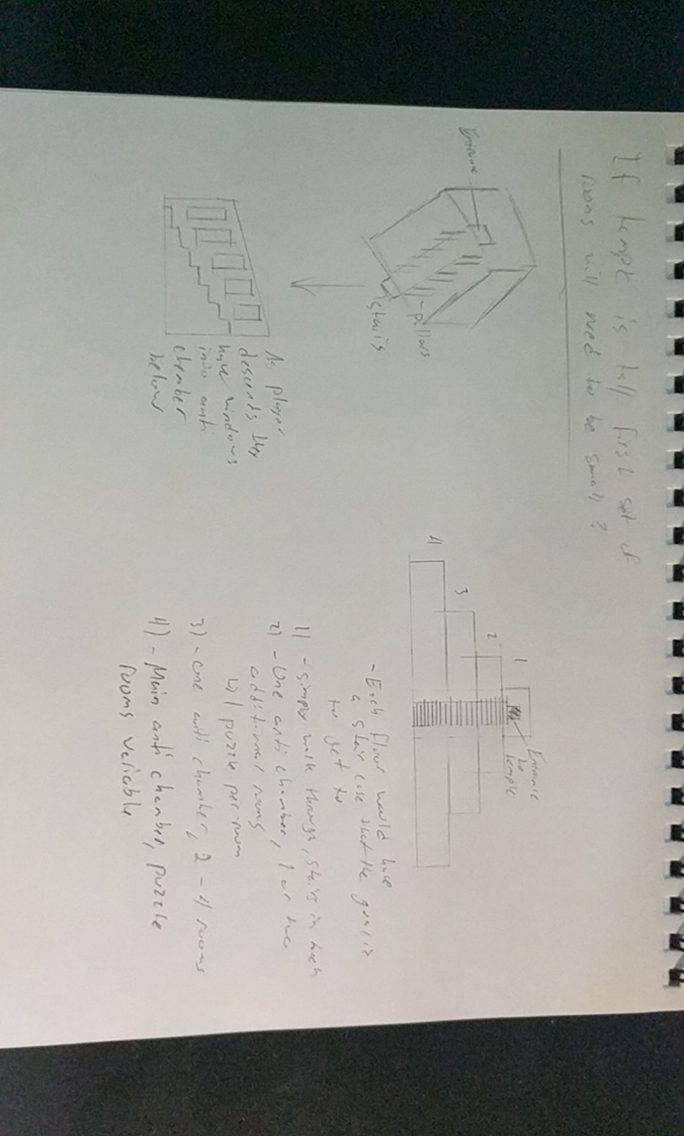 If templ is tall first set of
rooms will need to be small?
Entrance
pillars
stairs
As player
descents they
have windows
into anti
chamber
below
1
2
3
4
Entrance
to
temple
- Each floor would have
a stair case that the goal is
to get to
1) - simply walk through, stairs in back
2) - One anti chamber, 1 or two
additional rooms
w/ puzzle per room
3) - one anti chamber, 2-4 rooms
4) - Main anti chamber, puzzle
rooms variable